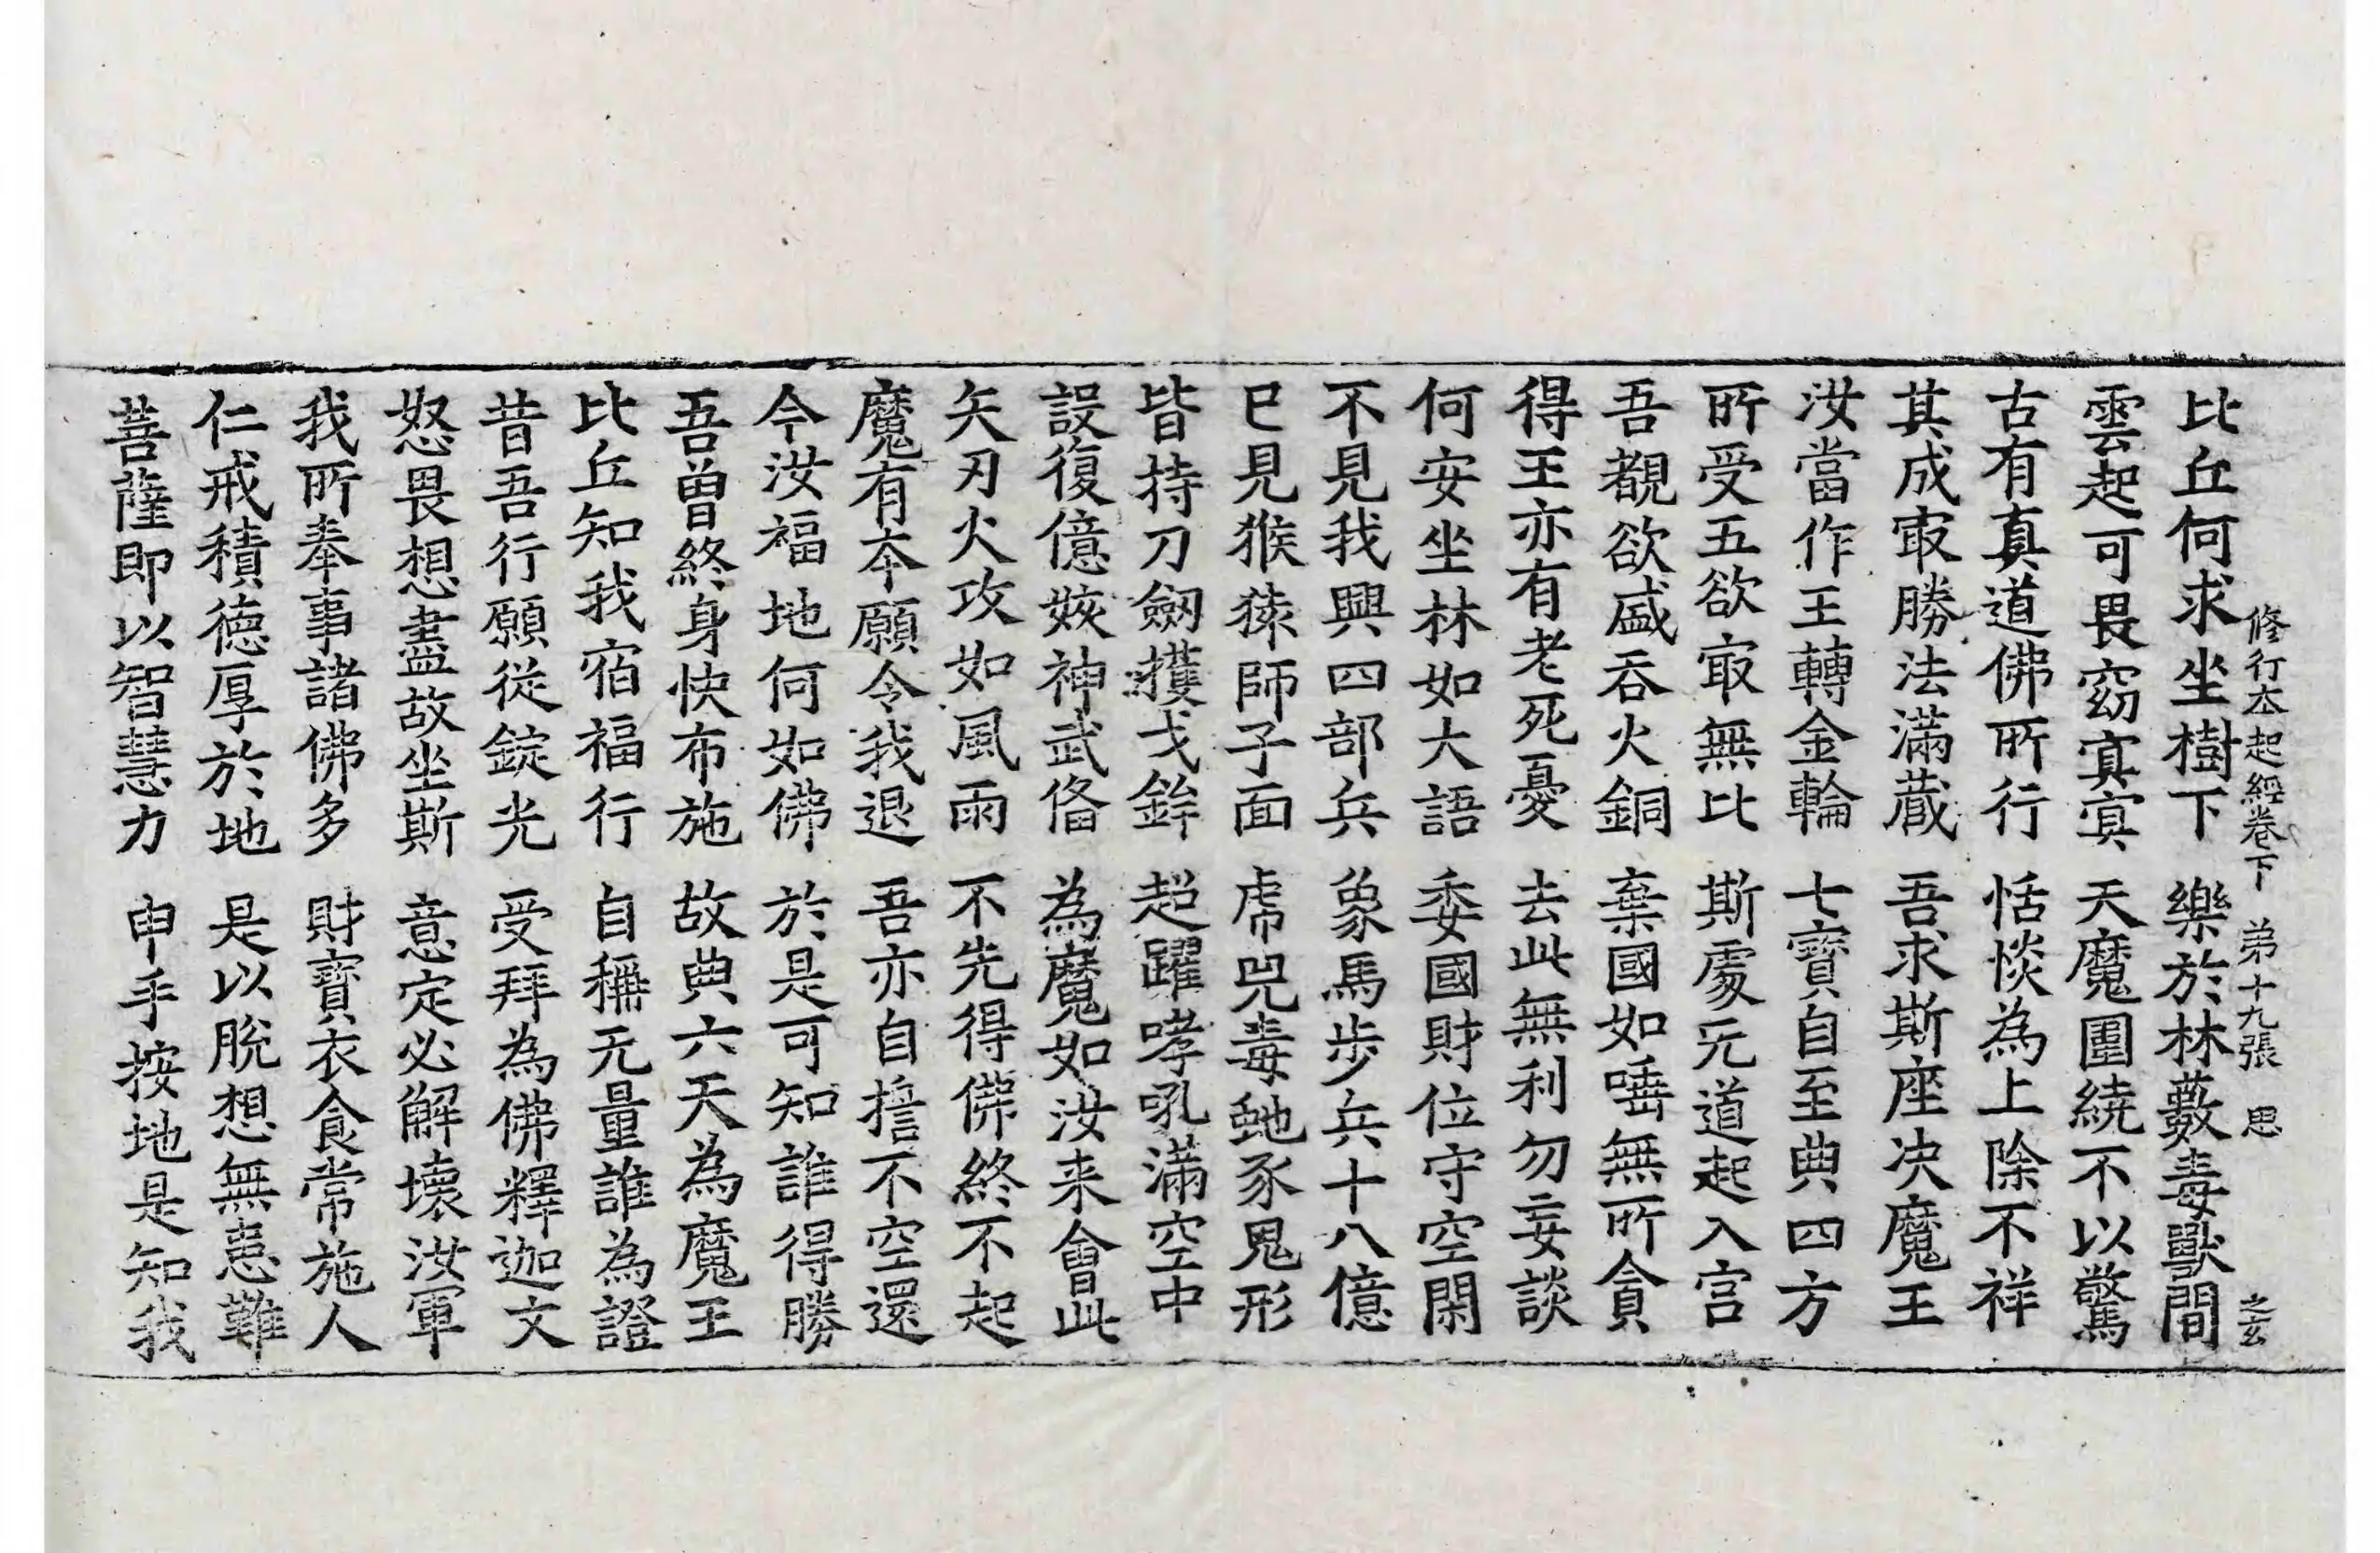 修行夲起經卷下 弟十九張 思 之玄
比丘何求坐樹下 樂於林藪毒獸間
雲起可畏窈㝠㝠 天魔圍繞不以驚
古有真道佛所行 恬惔為上除不祥
其成㝡勝法滿蔵 吾求斯座决魔王
汝當作王轉金輪 七寶自至典四方
所受五欲㝡無比 斯處无道起入宫
吾覩欲盛吞火銅 棄國如唾無所貪
得王亦有老死憂 去此無利勿妄談
何安坐林如大語 委國財位守空閑
不見我興四部兵 象馬步兵十八億
已見猴猿師子面 虎兕毒虵豕鬼形
皆持刀劒擭戈鉾 超躍哮吼滿空中
設復億姟神武俻 為魔如汝来會此
矢刃火攻如風雨 不先得佛終不起
魔有夲願令我退 吾亦自擔不空還
今汝福地何如佛 於是可知誰得勝
吾曽終身快布施 故典六天為魔王
比丘知我宿福行 自稱无量誰為證
昔吾行願從錠光 受拜為佛釋迦文
怒畏想盡故坐斯 意定必解壞汝軍
我所奉事諸佛多 財寶衣食常施人
仁戒積德厚於地 是以脫想無患難
菩薩即以智慧力 申手按地是知我